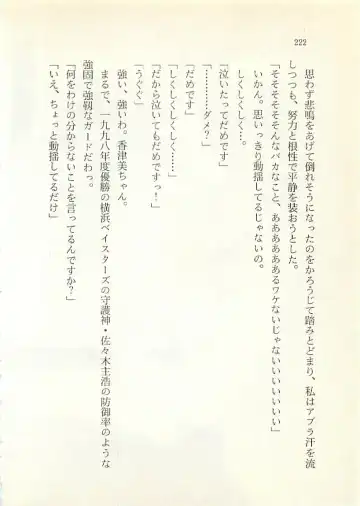 222
思わず悲鳴をあげて倒れそうになったのをかろうじて踏みとどまり、私はアブラ汗を流
しつつも、努力と根性で平静を装おうとした。
「そそそそそんなバカなこと、ああああああるワケないじゃないいいいいいい」
いかん。思いっきり動揺してるじゃないの。
しくしくしく。
「泣いたってだめです」
「………ダメ？」
「だめです」
「しくしくしくしく……」
「だから泣いてもだめですっ！」
「うぐぐ」
強い、強いわ。香津美ちゃん。
まるで、一九九八年度優勝の横浜ベイスターズの守護神・佐々木主浩の防御率のような
強固で強靱なガードだわっ。
「何をわけの分からないことを言ってるんですか？」
「いえ、ちょっと動揺してるだけ」